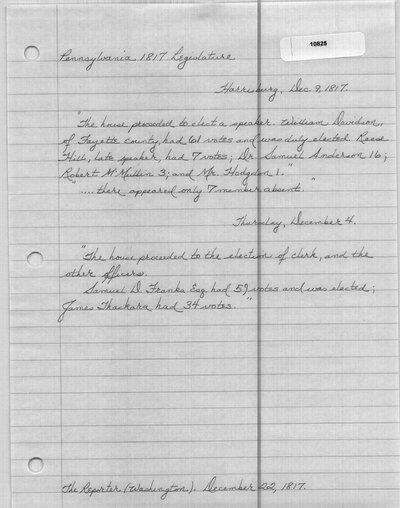 10825
Pennsylvania 1817 Legislature
Harrisburg, Dec. 9, 1817.
"The house proceeded to elect a speaker. William Davidson,
of Fayette county, had 61 votes and was duly elected. Reese
Hill, late speaker, had 7 votes; Dr. Samuel Anderson 16;
Robert McMullin 3; and Mr. Hodgdon 1."
".... there appeared only 7 member absent. "
Thursday, December 4.
"The house proceeded to the election of clerk, and the
other officers.
Samuel D. Franks Esq. had 59 votes and was elected;
James Thackara had 34 votes. "
The Reporter (Washington). December 22, 1817.